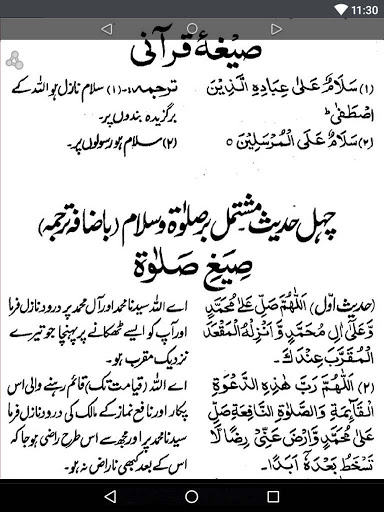 11:30
صیغۂ قرآنی
(۱) سَلَامٌ عَلٰی عِبَادِہِ الَّذِیْنَ
اصْطَفٰی ؕ
(۲) سَلَامٌ عَلَی الْمُرْسَلِیْنَ ○
ترجمہ:-(۱) سلام نازل ہو اللہ کے
برگزیدہ بندوں پر۔
(۲) سلام ہو رسولوں پر۔
چہل حدیث مشتمل بر صلوٰۃ وسلام (با ضافہ ترجمہ)
صِیَغِ صَلوٰۃ
(حدیث اوّل) اَللّٰهُمَّ صَلِّ عَلٰی مُحَمَّدٍ
وَّعَلٰٓی اٰلِ مُحَمَّدٍ وَّاَنْزِلْهُ الْمَقْعَدَ
الْمُقَرَّبَ عِنْدَكَ۔
اے اللہ سیدنا محمد اور آل محمد پر درود نازل فرما
اور آپ کو ایسے ٹھکانے پر پہنچا جو تیرے
نزدیک مقرب ہو۔
(۲) اَللّٰهُمَّ رَبَّ هٰذِهِ الدَّعْوَةِ
الْقَآئِمَةِ وَالصَّلٰوةِ النَّافِعَةِ صَلِّ
عَلٰی مُحَمَّدٍ وَّارْضَ عَنِّیْ رِضًا لَّا
تَسْخَطُ بَعْدَهٗ اَبَدًا۔
اے اللہ (قیامت تک) قائم رہنے والی اس
پکار اور نافع نماز کے مالک کی درود نازل فرما
سیدنا محمد پر اور مجھ سے اس طرح راضی ہو جا کہ
اس کے بعد کبھی ناراض نہ ہو۔